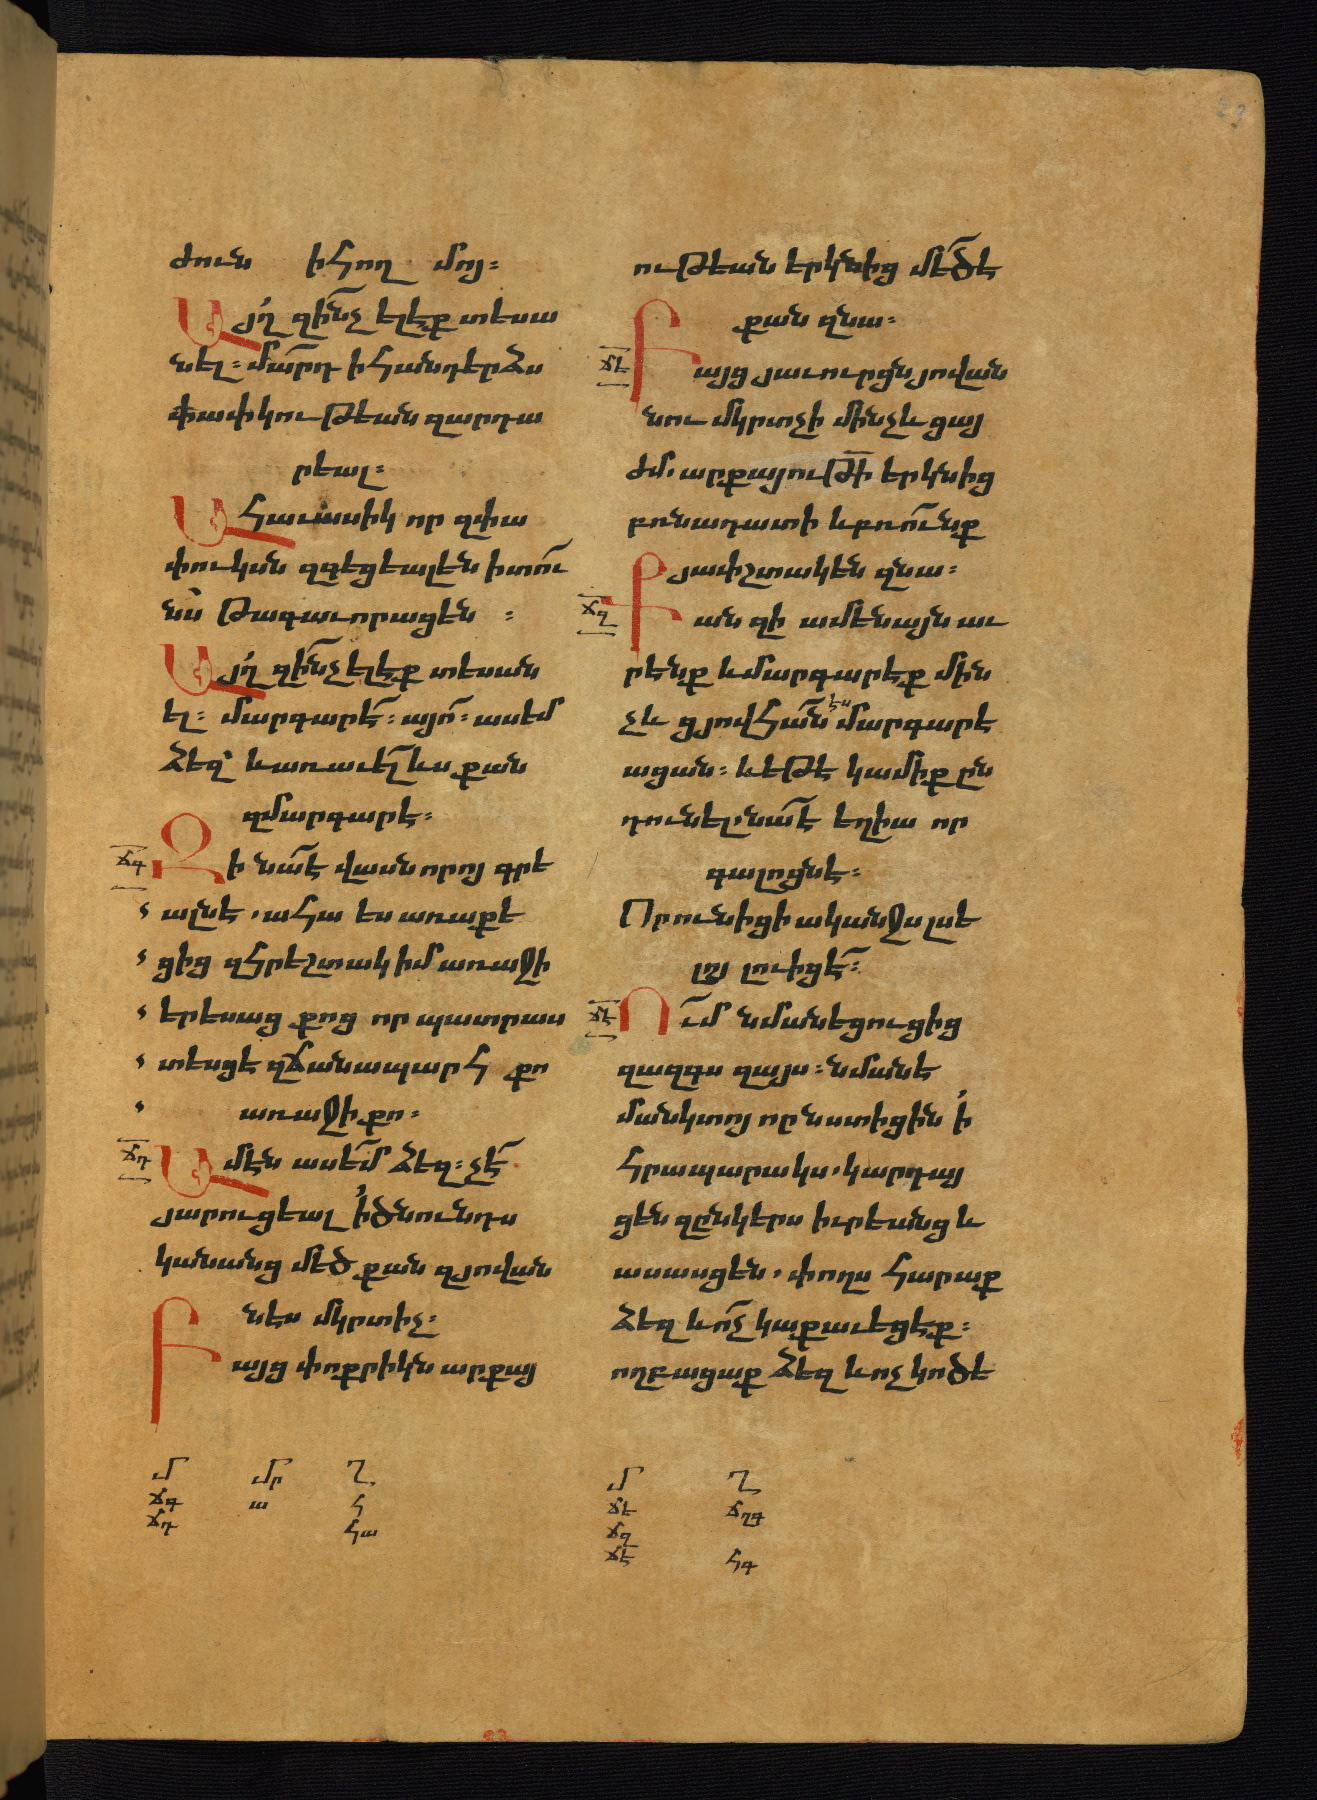 ժուն ի հող մոյ։
Այղ զի՞նչ ելէք տեսա
նել։ մարդ ի հանդերձս
փափկութեան զարդա
րեալ։
Ահաւասիկ որ զփա
փուկսն զգեցեալ են ի տու
նս թագաւորաց են ։
Այղ զի՞նչ ելէք տեսան
ել։ մարգարէ։ այո։ ասեմ
ձեզ՝ և առաւել ևս քան
զմարգարէ։
ՃԳ Զի նա է վասն որոյ գրե
ալն է, ահա ես առաքե
ցից զհրեշտակ իմ առաջի
երեսաց քոց որ պատրաս
տեսցէ զճանապարհ քո
առաջի քո։
ՃԴ Ամէն ասեմ ձեզ։ չէ
յարուցեալ ի ծնունդս
կանանց մեծ քան զյովան
նէս մկրտիչ։
Բայց փոքրիկն արքայ
Մ Մր Ղ
ՃԳ Ա Հ
ՃԴ ՀԱ
ութեան երկնից մեծ է
քան զնա։
ՃԵ Բայց յաւուրցն յովան
նու մկրտչի մինչև ցայ
ժմ. արքայութի երկնից
բռնադատի և բռունք
յափշտակեն զնա։
ՃԶ Քանզի ամենայն աւ
րէնք և մարգարէք մին
չև ցյովհան էս մարգարէ
ացան։ և եթէ կամիք ըն
դունել նա է եղիա որ
գալոցն է։
Որ ունիցի ականջս լսե
լոյ լուիցէ։
ՃԷ Ում նմանեցուցից
զազգս զայս։ նման է
մանկտոյ ոը նստիցին ի
հրապարակս, կարդայ
ցեն զընկերս իւրեանց և
ասասցեն, փողս հարաք
ձեզ և ոչ կաքաւեցէք։
ողբացաք ձեզ և ոչ կոծե
Մ Ղ
ՃԵ ՃՂԳ
ՃԶ
ՃԷ ՀԳ